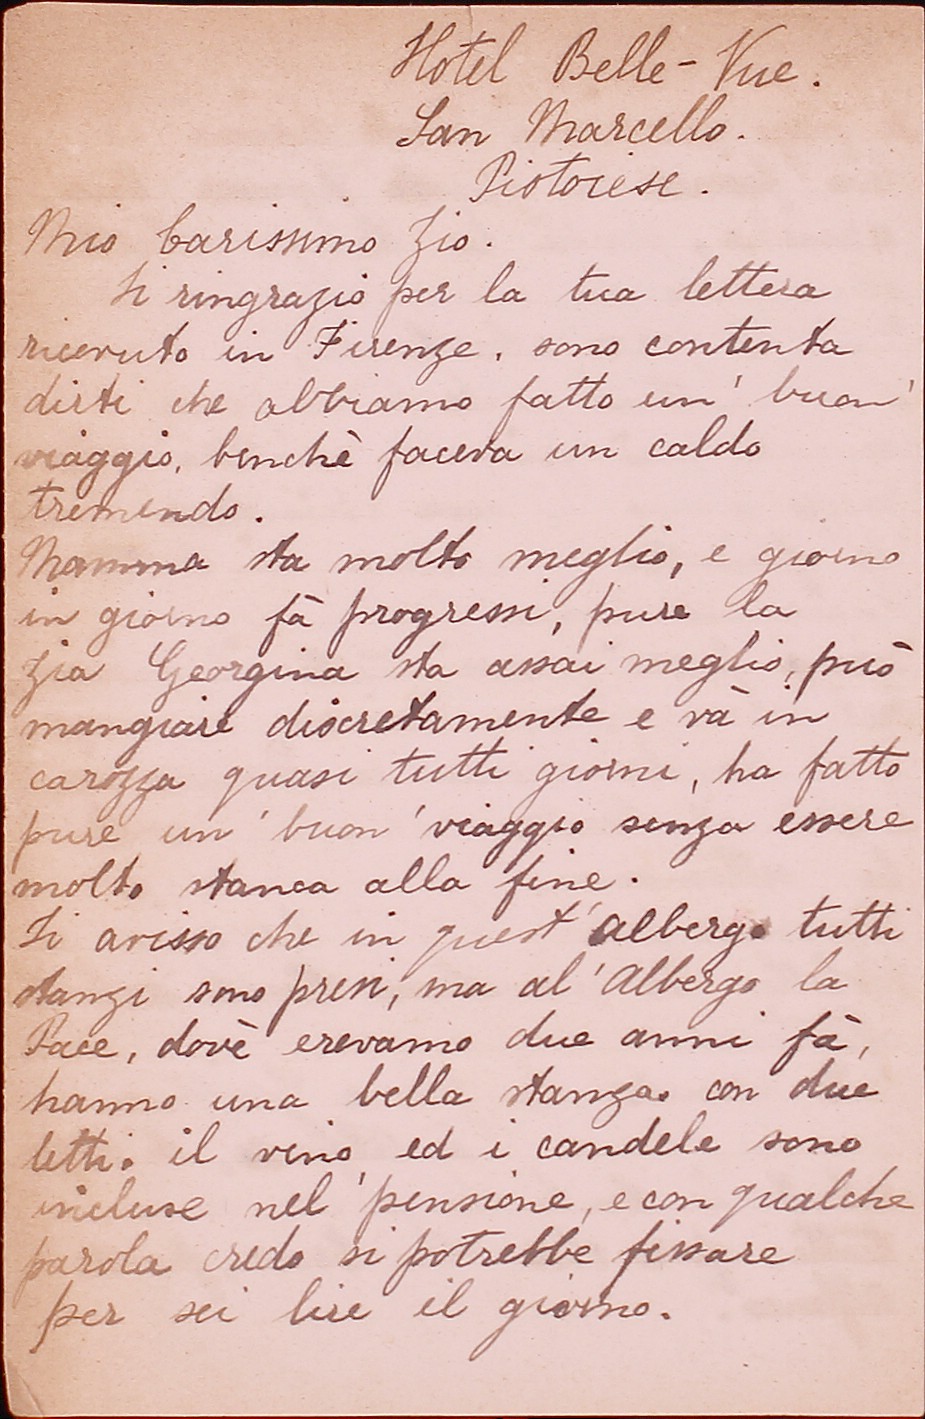 Hotel Belle-Vue.
San Marcello.
Pistoiese.
Mio Carissimo Zio.
Ti ringrazio per la tua lettera
ricevuto in Firenze. sono contenta
dirti che abbiamo fatto un' buon'
viaggio, benchè faceva un caldo
tremendo.
Mamma sta molto meglio, e giorno
in giorno fà progressi, pure la
Zia Georgina sta assai meglio, può
mangiare discretamente e và in
carozza quasi tutti giorni, ha fatto
pure un' buon' viaggio senza essere
molto stanca alla fine.
Ti avisso che in quest' albergo tutti
stanzi sono presi, ma al' Albergo la
Pace, dovè erevamo due anni fà,
hanno una bella stanza. con due
letti. il vino ed i candele sono
incluse nel' pensione, e con qualche
parola credo si potrebbe fissare
per sei lire il giorno.